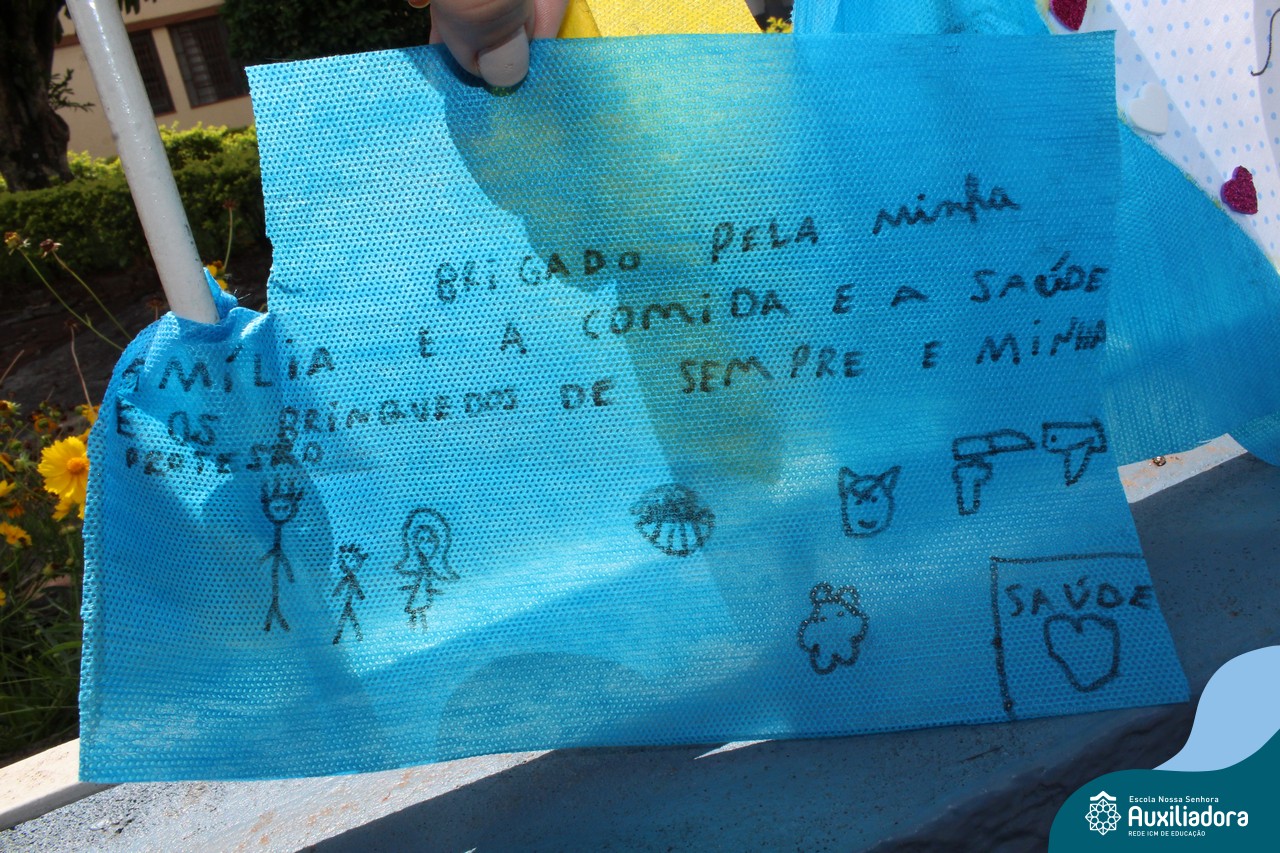 BRIGADO PELA minha
FAMÍLIA E A COMIDA E A SAÚDE
E OS BRINQUEDOS DE SEMPRE E MINHA
PROFESSÃO
SAÚDE
Escola Nossa Senhora
Auxiliadora
REDE ICM DE EDUCAÇÃO